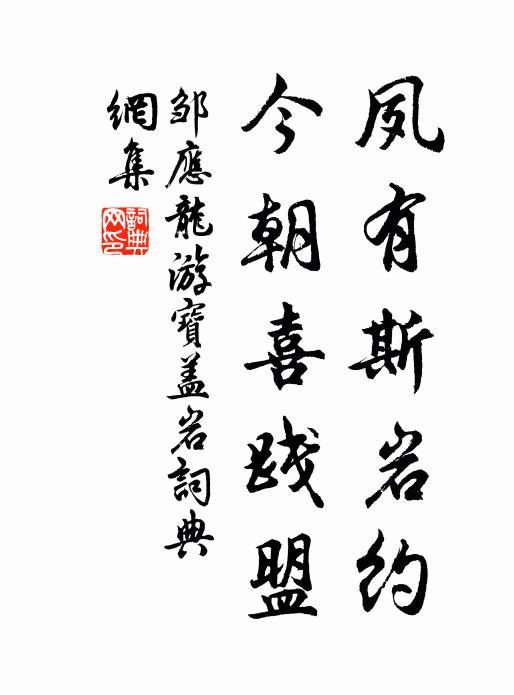 夙有斯岩约
今朝喜践盟
邹應龍游寶盖岩詞典
網集
詞典網印